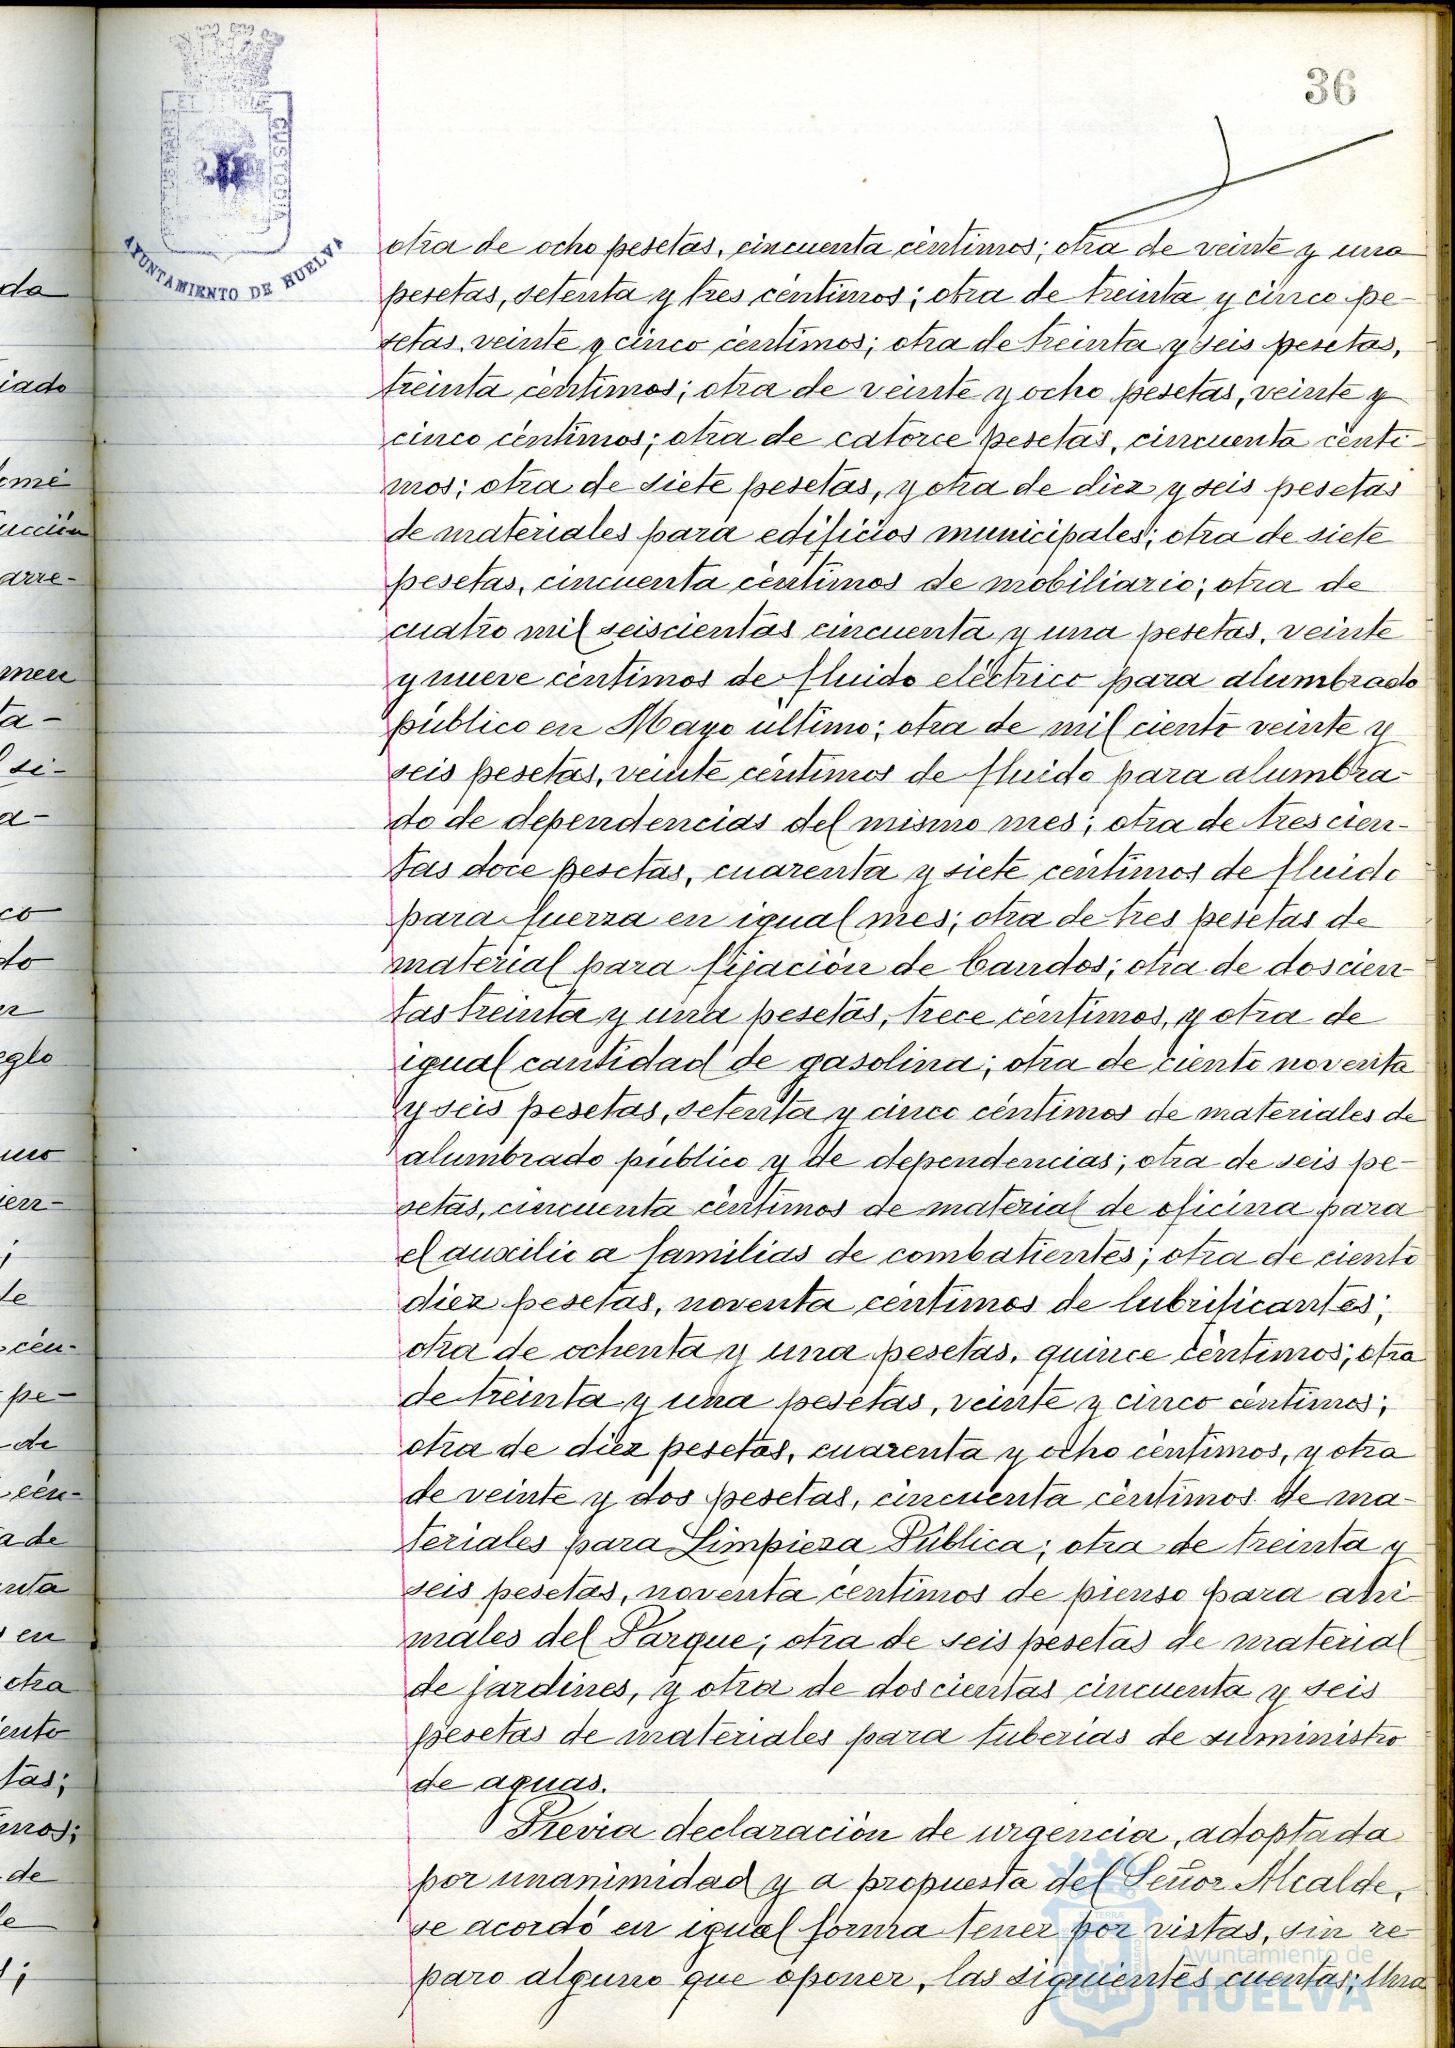 36
AYUNTAMIENTO DE HUELVA
otra de ocho pesetas, cincuenta céntimos; otra de veinte y una
pesetas, setenta y tres céntimos; otra de treinta y cinco pe-
setas, veinte y cinco céntimos; otra de treinta y seis pesetas,
treinta céntimos; otra de veinte y ocho pesetas, veinte y
cinco céntimos; otra de catorce pesetas, cincuenta cénti-
mos; otra de siete pesetas, y otra de diez y seis pesetas
de materiales para edificios municipales; otra de siete
pesetas, cincuenta céntimos de mobiliario; otra de
cuatro mil seiscientas cincuenta y una pesetas, veinte
y nueve céntimos de fluido eléctrico para alumbrado
público en Mayo último; otra de mil ciento veinte y
seis pesetas, veinte céntimos de fluido para alumbra-
do de dependencias del mismo mes; otra de trescien-
tas doce pesetas, cuarenta y siete céntimos de fluido
para fuerza en igual mes; otra de tres pesetas de
material para fijación de Bandos; otra de doscien-
tas treinta y una pesetas, trece céntimos, y otra de
igual cantidad de gasolina; otra de ciento noventa
y seis pesetas, setenta y cinco céntimos de materiales de
alumbrado público y de dependencias; otra de seis pe-
setas, cincuenta céntimos de material de oficina para
el auxilio a familias de combatientes; otra de ciento
diez pesetas, noventa céntimos de lubrificantes;
otra de ochenta y una pesetas, quince céntimos; otra
de treinta y una pesetas, veinte y cinco céntimos;
otra de diez pesetas, cuarenta y ocho céntimos, y otra
de veinte y dos pesetas, cincuenta céntimos de ma-
teriales para Limpieza Pública; otra de treinta y
seis pesetas, noventa céntimos de pienso para ani-
males del Parque; otra de seis pesetas de material
de jardines, y otra de doscientas cincuenta y seis
pesetas de materiales para tuberias de suministro
de aguas.
Previa declaración de urgencia, adoptada
por unanimidad y a propuesta del Señor Alcalde,
se acordó en igual forma tener por vistas, sin re-
paro alguno que oponer, las siguientes cuentas; Una
Ayuntamiento de
HUELVA